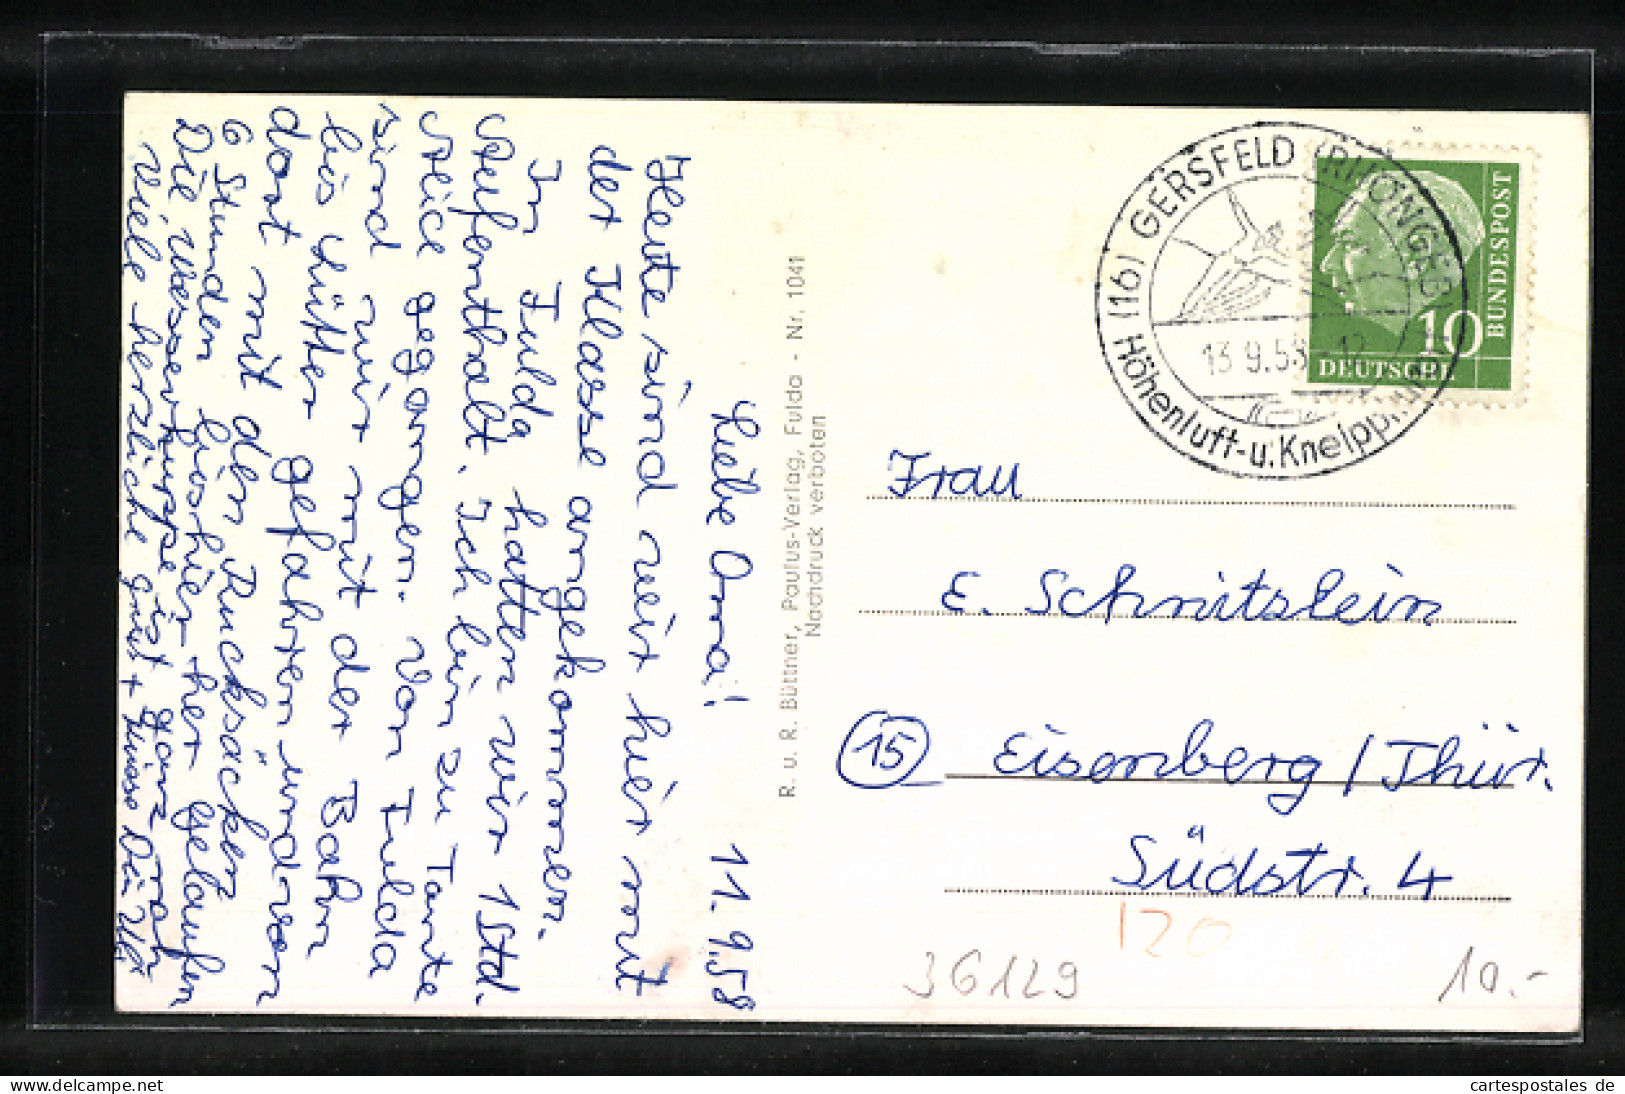 11.9.58
Liebe Oma!
Heute sind wir hier mit
der Klasse angekommen.
In Fulda hatten wir 1 Std.
Aufenthalt. Ich bin zu Tante
Alice gegangen. Von Fulda
sind wir mit der Bahn
bis Lütter gefahren und von
dort mit den Rucksäcken
6 Stunden bis hier her gelaufen
Die Wasserkuppe ist ganz nah
Viele herzliche Grüße Dein Uli
R. u. R. Büttner, Paulus-Verlag, Fulda - Nr. 1041
Nachdruck verboten
(16) GERSFELD (RHÖNGEB
13.9.58-12
Höhenluft-u. Kneipp
DEUTSCHE
BUNDESPOST
10
Frau
E. Schnitzlein
15 Eisenberg / Thür.
Südstr. 4
120
36129
10.-
www.delcampe.net
cartespostales de